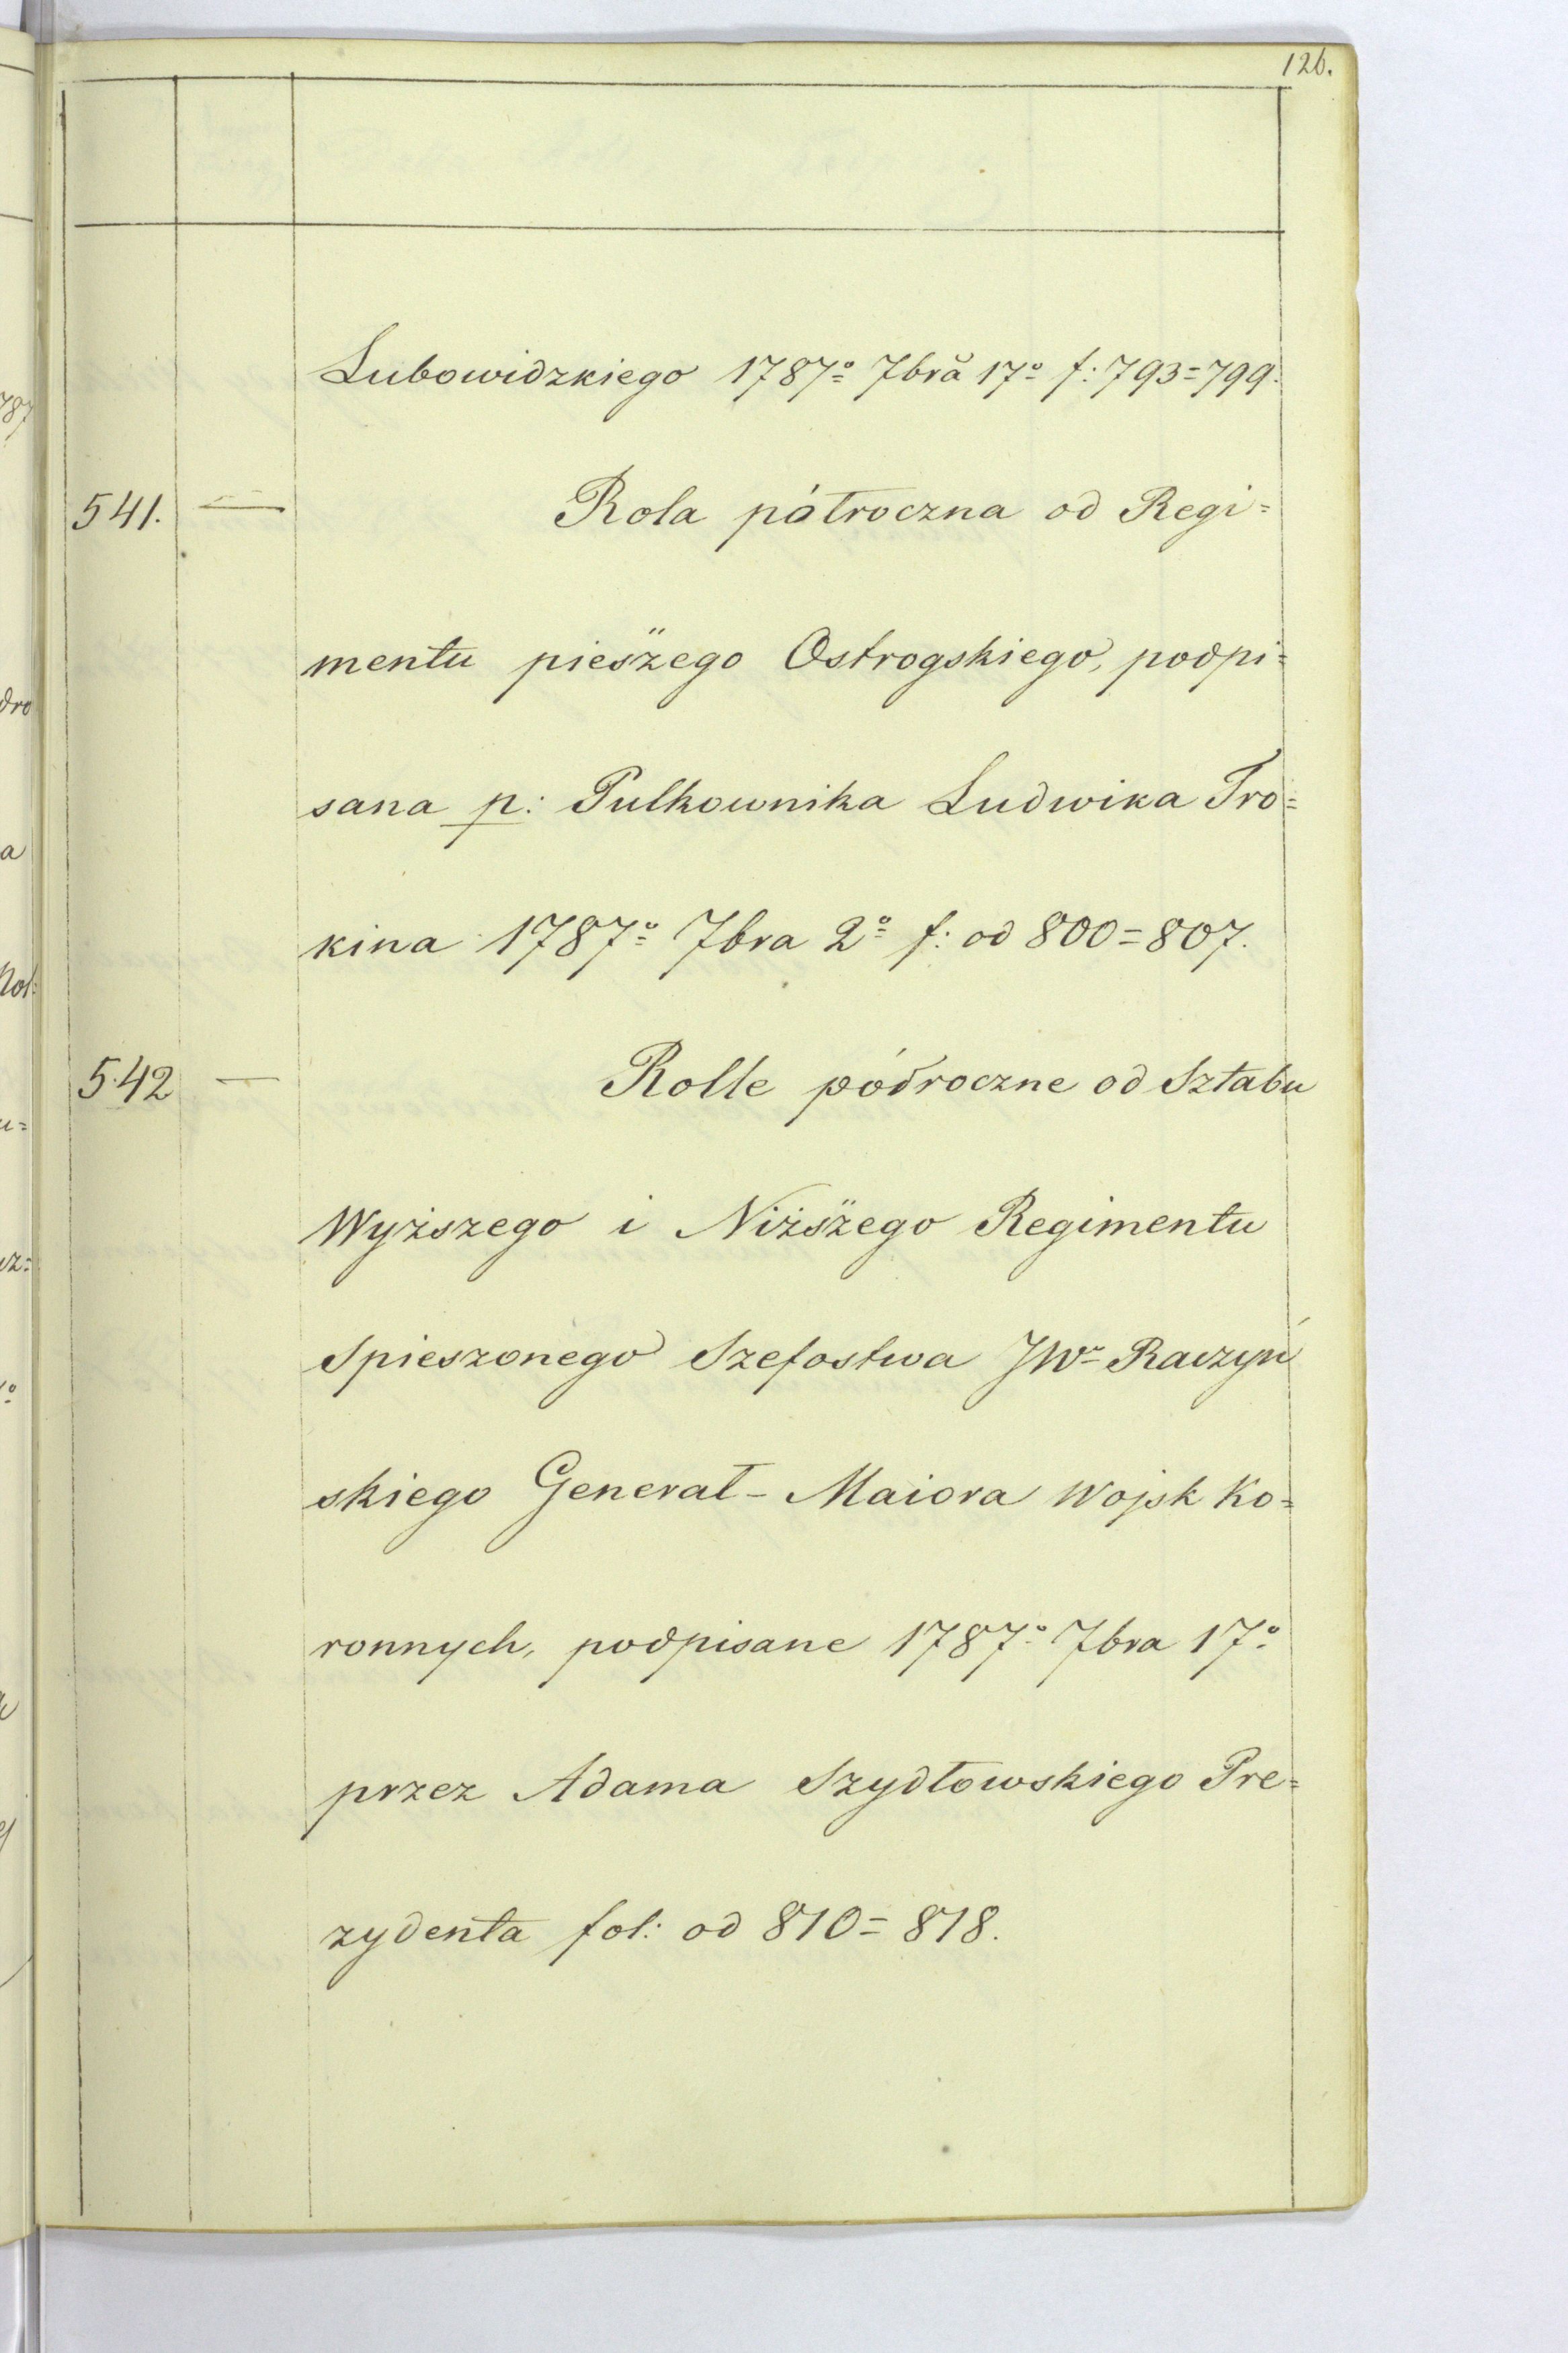 126.
Lubowidzkiego 1787º 7bra 17º f: 793=799.
541. — Rola półroczna od Regi=
mentu pieszego Ostrogskiego, podpi=
sana p: Pulkownika Ludwika Tro=
kina 1787º 7bra 2º f: od 800=807.
542 — Rolle półroczne od Sztabu
Wyższego i Niższego Regimentu
Spieszonego Szefostwa JWº Raczyń
skiego Generał-Maiora Wojsk Ko=
ronnych, podpisane 1787º 7bra 17º
przez Adama Szydłowskiego Pre=
zydenta fol: od 810=818.